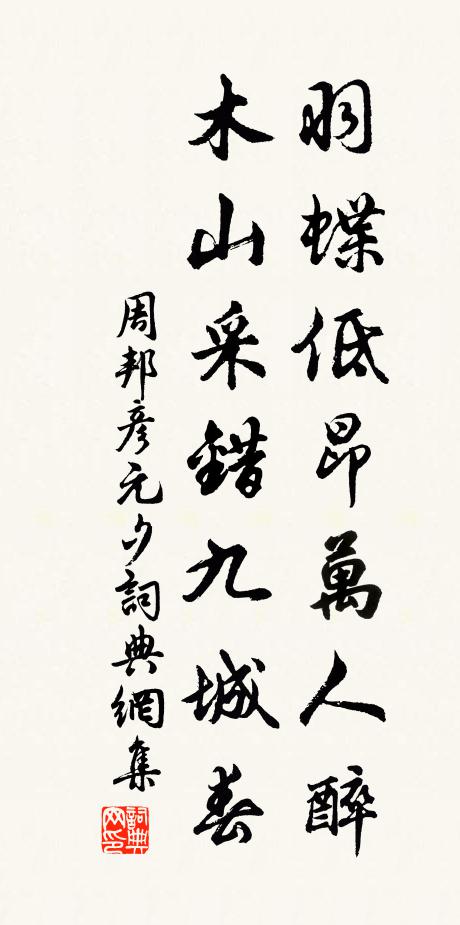 羽蝶低昂萬人醉
木山采錯九城春
周邦彥元夕詞典網集
詞典網印